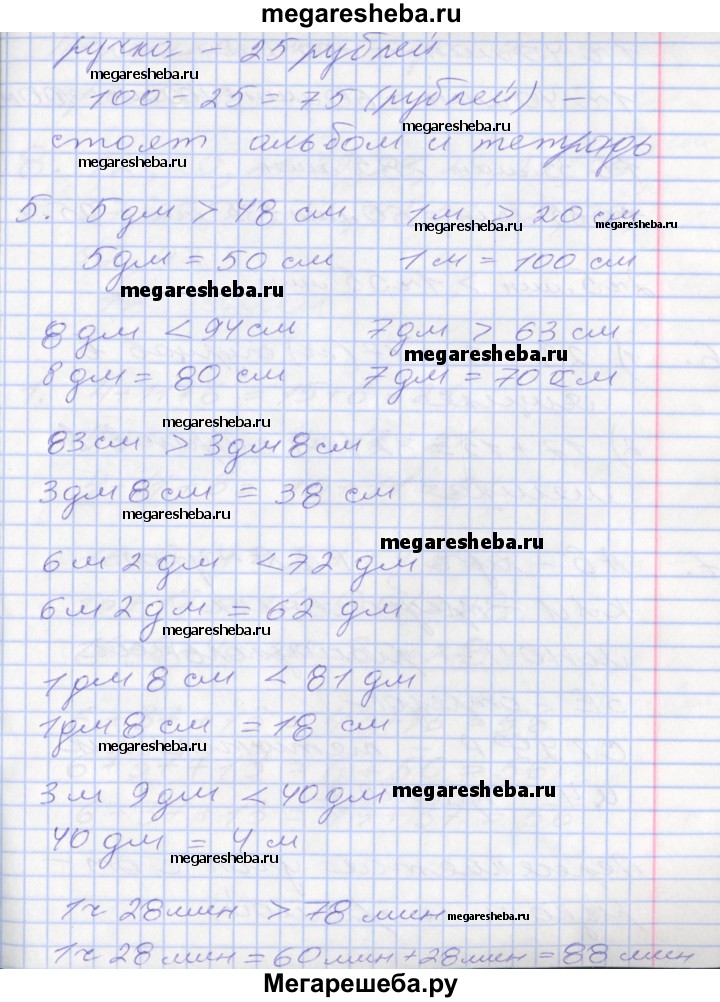 megaresheba.ru
ручка - 25 рублей
megaresheba.ru
100 - 25 = 75 (рублей) -
megaresheba.ru
стоят альбом и тетрадь
megaresheba.ru
5. 5 дм > 48 см 1 м > 20 см
megaresheba.ru megaresheba.ru
5 дм = 50 см 1 м = 100 см
megaresheba.ru
8 дм < 94 см 7 дм > 63 см
megaresheba.ru
8 дм = 80 см 7 дм = 70 см
megaresheba.ru
83 см > 3 дм 8 см
3 дм 8 см = 38 см
megaresheba.ru
megaresheba.ru
6 м 2 дм < 72 дм
6 м 2 дм = 62 дм
megaresheba.ru
1 дм 8 см < 81 дм
1 дм 8 см = 18 см
megaresheba.ru
3 м 9 дм < 40 дм
megaresheba.ru
40 дм = 4 м
megaresheba.ru
1 ч 28 мин > 78 мин
megaresheba.ru
1 ч 28 мин = 60 мин + 28 мин = 88 мин
Мегарешеба.ру